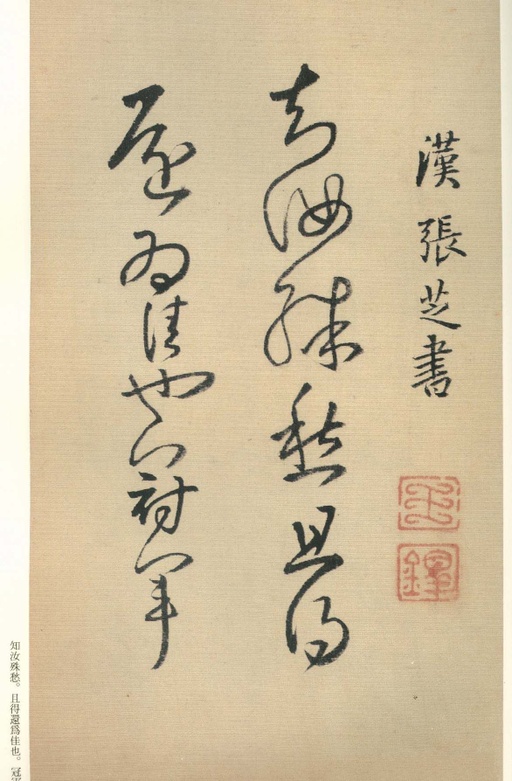 漢張芝書
鐸
知汝殊愁且得
還為佳也冠軍
知汝殊愁。且得還爲佳也。冠